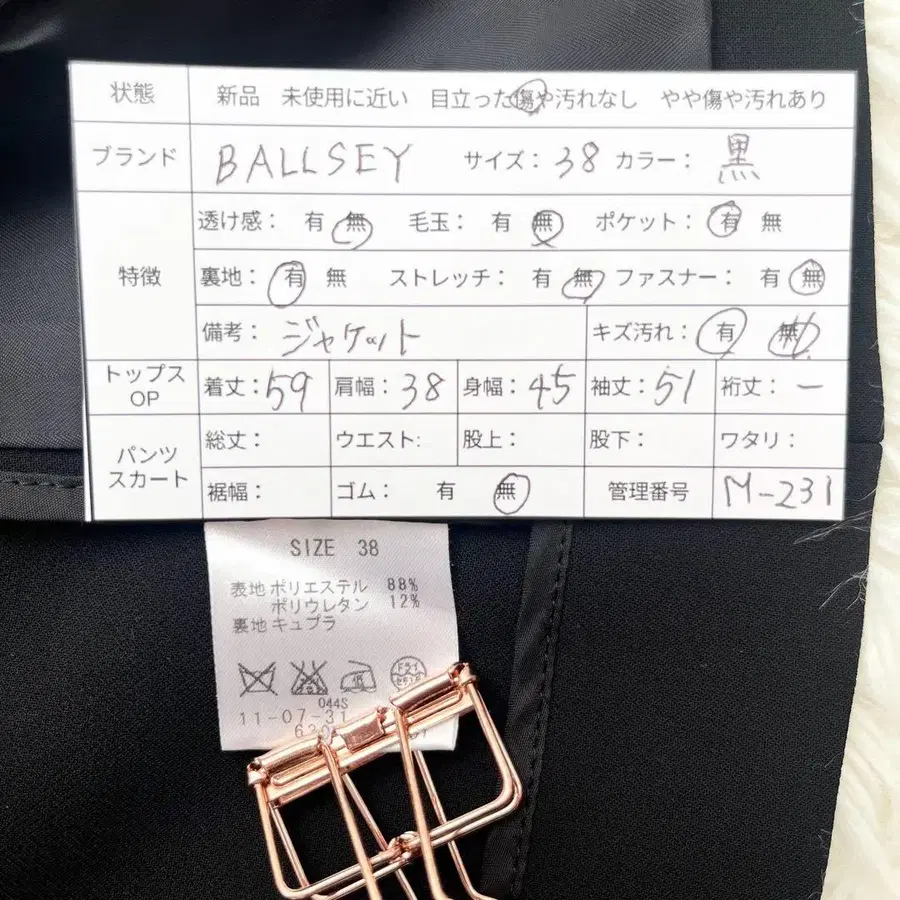 状態 新品 未使用に近い 目立った傷や汚れなし やや傷や汚れあり
ブランド BALLSEY サイズ: 38 カラー: 黒
特徴
透け感: 有 無 毛玉: 有 無 ポケット: 有 無
裏地: 有 無 ストレッチ: 有 無 ファスナー: 有 無
備考: ジャケット キズ汚れ: 有 無
トップス OP 着丈: 59 肩幅: 38 身幅: 45 袖丈: 51 裄丈: ー
パンツ スカート
総丈: ウエスト: 股上: 股下: ワタリ:
裾幅: ゴム: 有 無 管理番号 M-231
SIZE 38
表地 ポリエステル 88%
ポリウレタン 12%
裏地 キュプラ
ドライ
044S
11-07-31